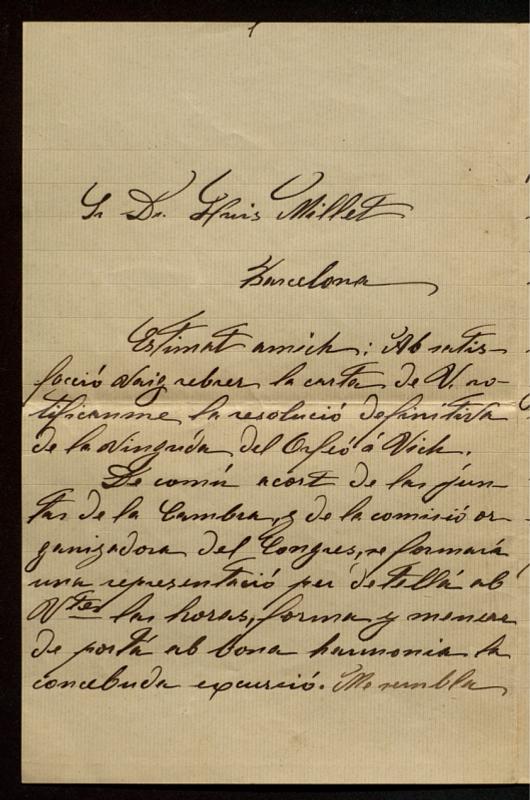 Sr Dn. Lluis Millet
Barcelona
Estimat amich: Ab satis-
facció vaig rebrer la carta de V. no-
tificanme la resolució definitiva
de la vinguda del Orfeó á Vich.
De comú acort de las jun-
tas de la Cambra, y de la comisió or
ganizadora del Congres, se formará
una representació per detallá ab
Vtes las horas, forma y manera
de portá ab bona harmonia la
concebuda excursió. Me sembla